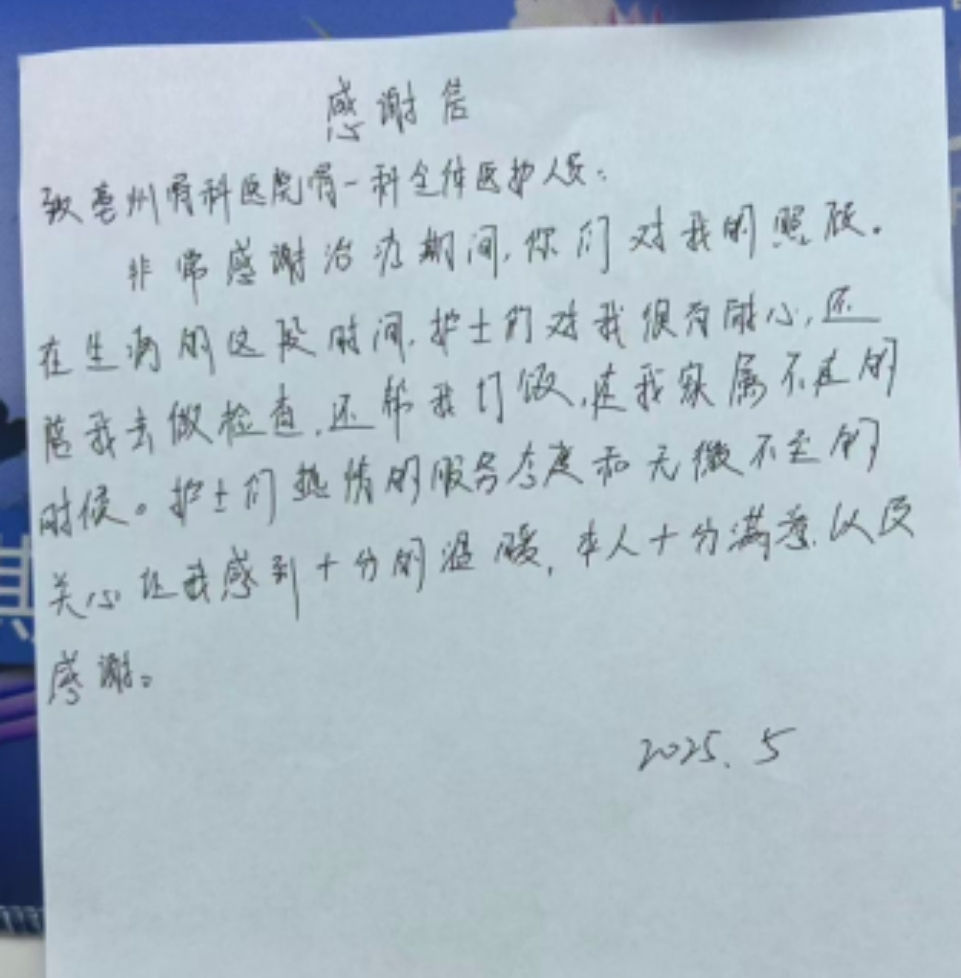 感谢信
致亳州骨科医院骨一科全体医护人员:
非常感谢治疗期间,你们对我的照顾。
在生病的这段时间,护士们对我很有耐心,还
陪我去做检查,还帮我打饭,在我家属不在的
时候。护士们热情的服务态度和无微不至的
关心让我感到十分的温暖,本人十分满意,以及
感谢。
2025.5
其